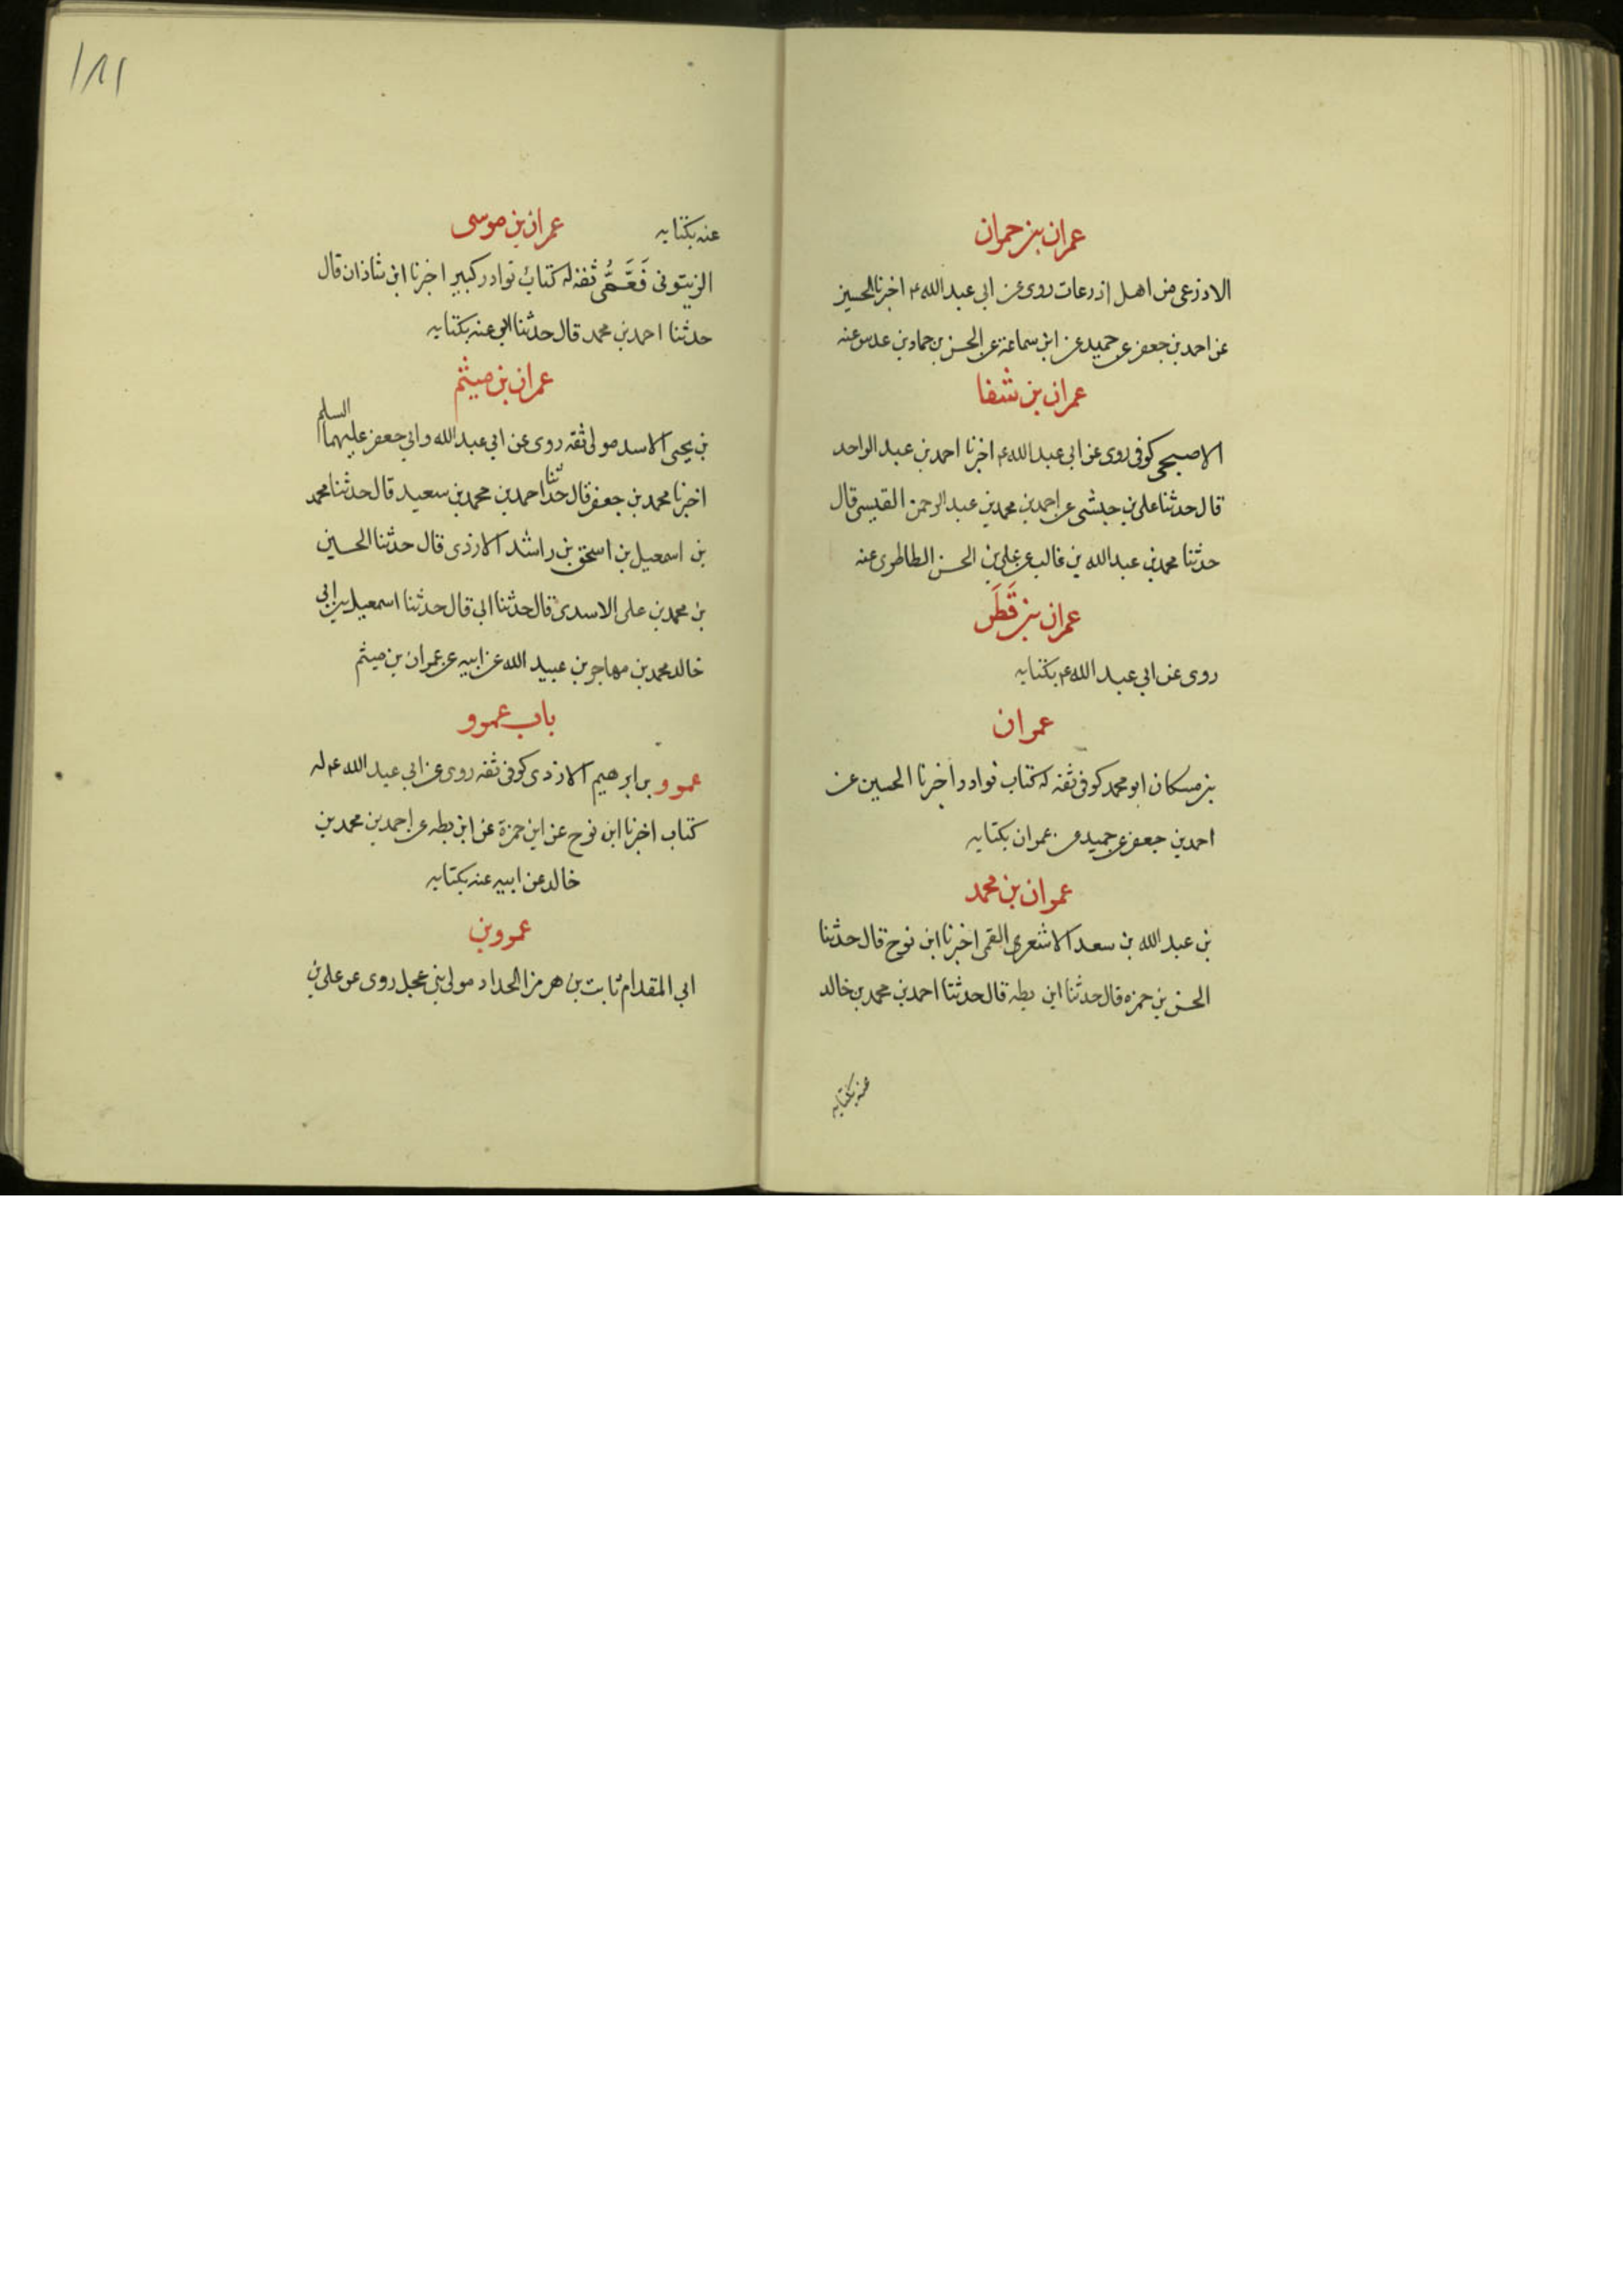 عمران بن حمران
الاذرعى من اهل اذرعات روى عن ابى عبد الله ع اخبرنا الحسين
عن احمد بن جعفر عن حميد عن ابن سماعة عن الحسن بن حماد بن عديس عنه
عمران بن شفا
الاصبحى كوفى روى عن ابى عبد الله ع اخبرنا احمد بن عبد الواحد
قال حدثنا على بن حبشى عن احمد بن محمد بن عبد الرحمن القيسى قال
حدثنا محمد بن عبد الله بن غالب عن على بن الحسن الطاطرى عنه
عمران بن قَطَر
روى عن ابى عبد الله ع بكتابه
عمران
بن مسكان ابو محمد كوفى ثقه له كتاب نوادر اخبرنا الحسين عن
احمد بن جعفر عن حميد عن عمران بكتابه
عمران بن محمد
بن عبد الله بن سعد الاشعرى القمى اخبرنا ابن نوح قال حدثنا
الحسن بن حمزه قال حدثنا ابن بطه قال حدثنا احمد بن محمد بن خالد
عنه بكتابه
١٨١
عنه بكتابه عمران بن موسى
الزيتونى قمى ثقه له كتاب نوادر كبير اخبرنا ابن شاذان قال
حدثنا احمد بن محمد قال حدثنا ابى عنه بكتابه
عمران بن ميثم
بن يحيى الاسد مولى ثقه روى عن ابى عبد الله وابى جعفر عليهما السلم
اخبرنا محمد بن جعفر قال حدثنا احمد بن محمد بن سعيد قال حدثنا محمد
بن اسمعيل بن اسحق بن راشد الازدى قال حدثنا الحسين
بن محمد بن على الاسدى قال حدثنا ابى قال حدثنا اسمعيل بن ابى
خالد محمد بن مهاجر بن عبيد الله عن ابيه عن عمران بن ميثم
باب عمرو
عمرو بن ابرهيم الازدى كوفى ثقه روى عن ابى عبد الله ع له
كتاب اخبرنا ابن نوح عن ابن حمزة عن ابن بطه عن احمد بن محمد بن
خالد عن ابيه عنه بكتابه
عمرو بن
ابى المقدام ثابت بن هرمز الحداد مولى بنى عجل روى عن على بن